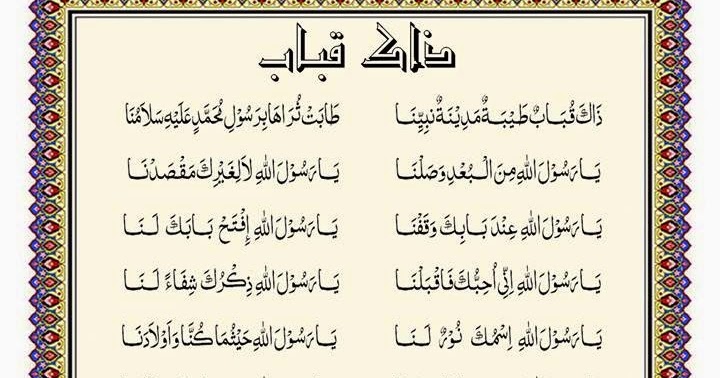 ذاك قباب
ذَاكَ قُبَابٌ طَيْبَةٌ مَدِيْنَةٌ نَبِيِّنَا طَابَتْ ثُرَاهَا بِرَسُوْلِ مُحَمَّدٍ عَلَيْهِ سَلَامُنَا
يَا رَسُوْلَ اللهِ مِنَ الْبُعْدِ وَصَلْنَا يَا رَسُوْلَ اللهِ لَا لِغَيْرِكَ مَقْصَدْنَا
يَا رَسُوْلَ اللهِ عِنْدَ بَابِكَ وَقَفْنَا يَا رَسُوْلَ اللهِ إِفْتَحْ بَابَكَ لَنَا
يَا رَسُوْلَ اللهِ اِنِّي اُحِبُّكَ فَاقْبَلْنَا يَا رَسُوْلَ اللهِ ذِكْرُكَ شِفَاءً لَنَا
يَا رَسُوْلَ اللهِ اِسْمُكَ نُوْرٌ لَنَا يَا رَسُوْلَ اللهِ حَيْثُمَا كُنَّا وَ اَوْلَادَنَا